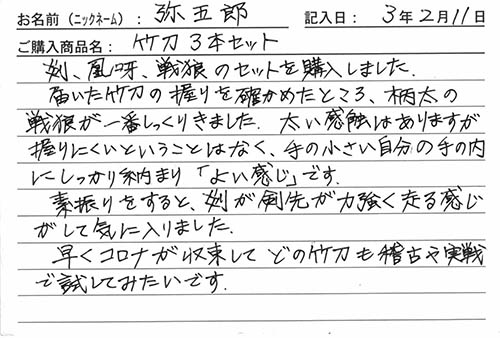 お名前（ニックネーム）: 弥五郎 記入日: 3年2月11日
ご購入商品名: 竹刀3本セット
剡、凰呀、戦狼のセットを購入しました.
届いた竹刀の握りを確かめたところ、柄太の
戦狼が一番しっくりきました. 太い感触はありますが
握りにくいということはなく、手の小さい自分の手の内
にしっかり納まり「よい感じ」です.
素振りをすると、剡が剣先が力強く走る感じ
がして気に入りました.
早くコロナが収束してどの竹刀も稽古や実戦
で試してみたいです.